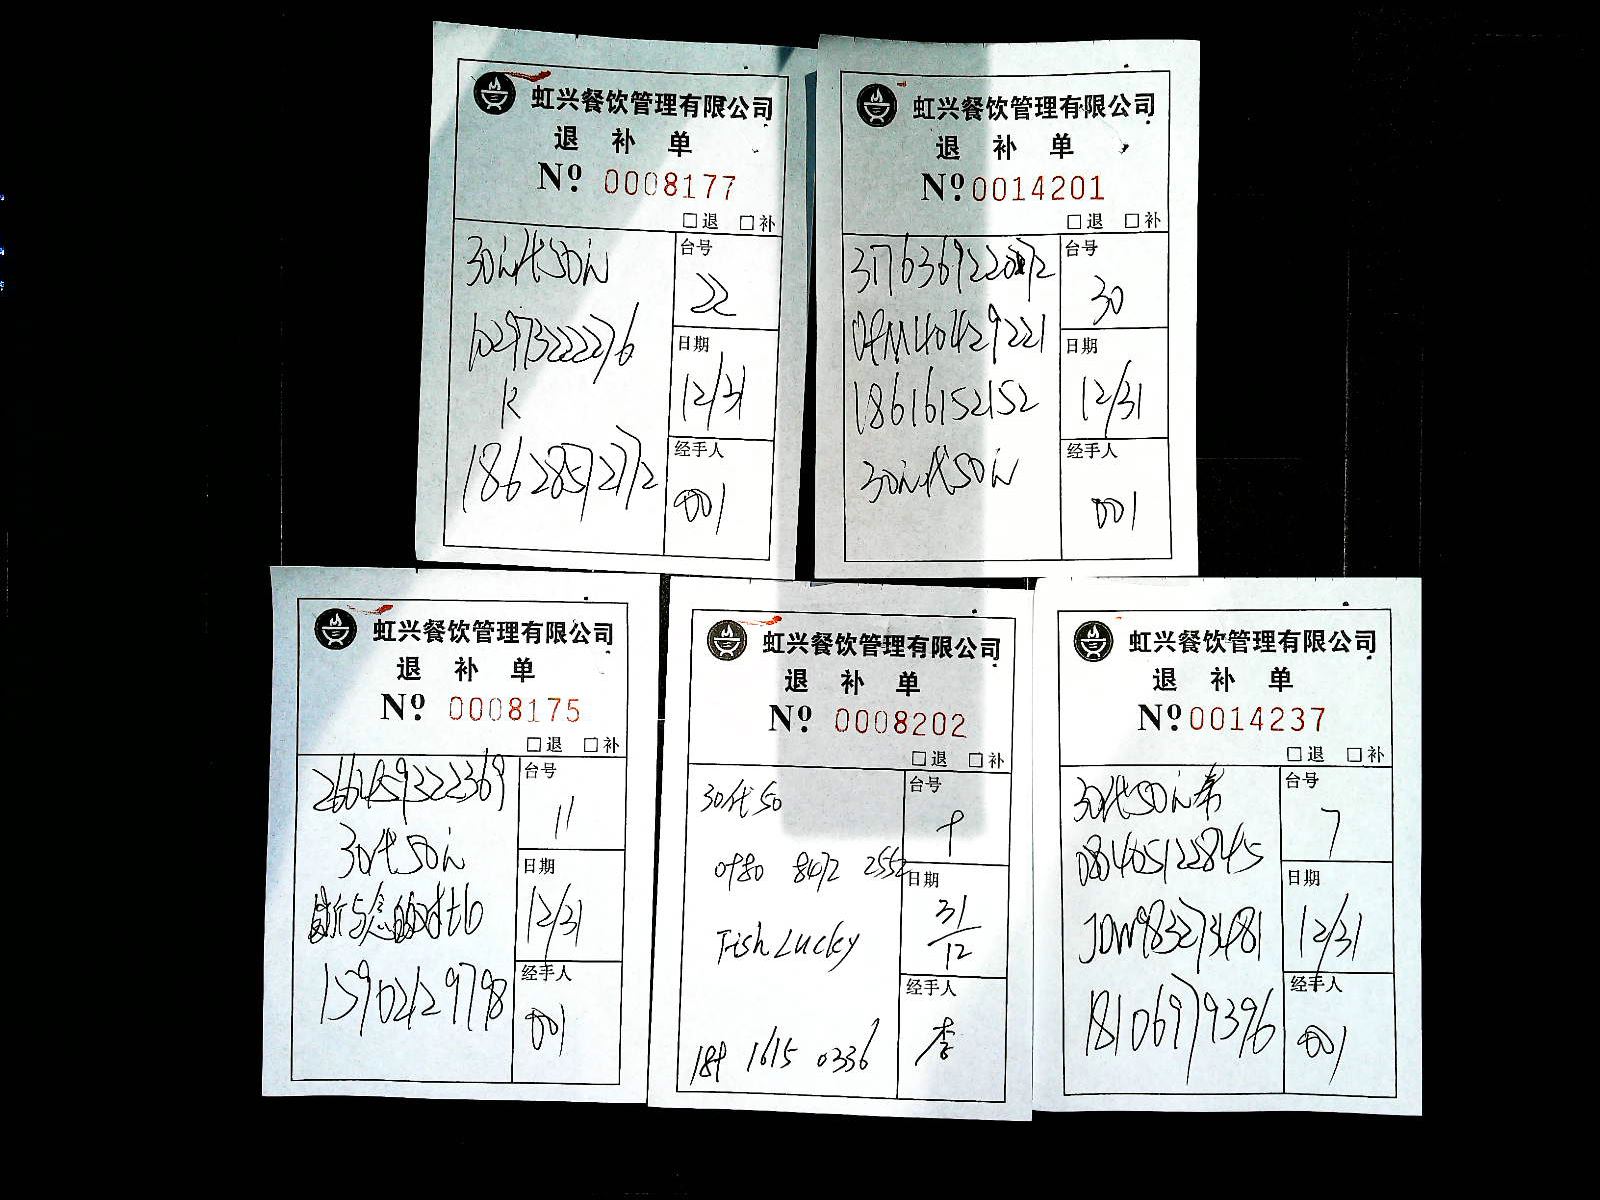 虹兴餐饮管理有限公司
退 补 单
Nº 0008177
□退 □补
30元代50元
台号
22
102973222276
日期
12/31
K
18628571272
经手人
001
虹兴餐饮管理有限公司
退 补 单
Nº 0014201
□退 □补
台号
30
日期
12/31
18616152152
经手人
30元代50元
001
虹兴餐饮管理有限公司
退 补 单
Nº 0008175
□退 □补
台号
11
30代50元
日期
12/31
15902129798
经手人
001
虹兴餐饮管理有限公司
退 补 单
Nº 0008202
□退 □补
30代50
台号
日期
31/12
Fish Lucky
经手人
李
189 1615 0336
虹兴餐饮管理有限公司
退 补 单
Nº 0014237
□退 □补
30代50元券
台号
7
080405122845
日期
12/31
JDW983273481
经手人
18106979396
001